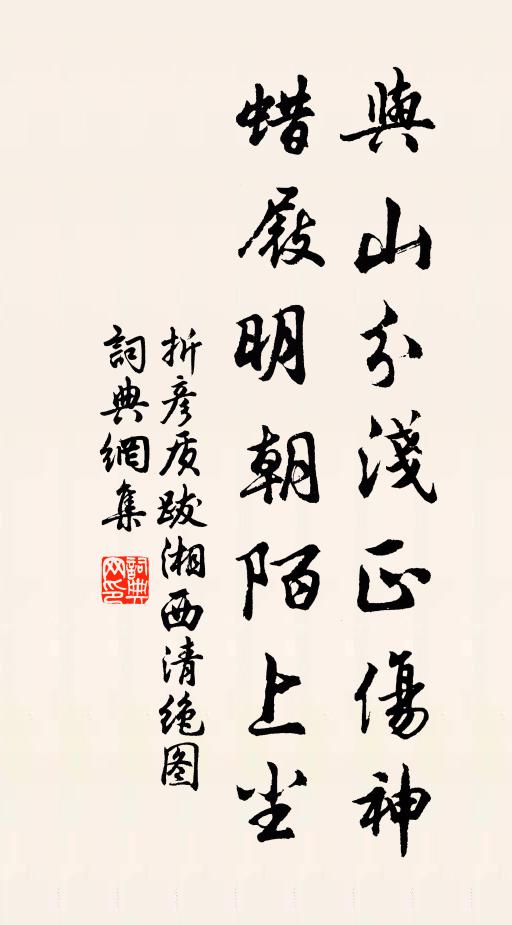 與山分淺正傷神
蜡屐明朝陌上尘
折彦质跋湘西清绝图
詞典網集
詞典网印